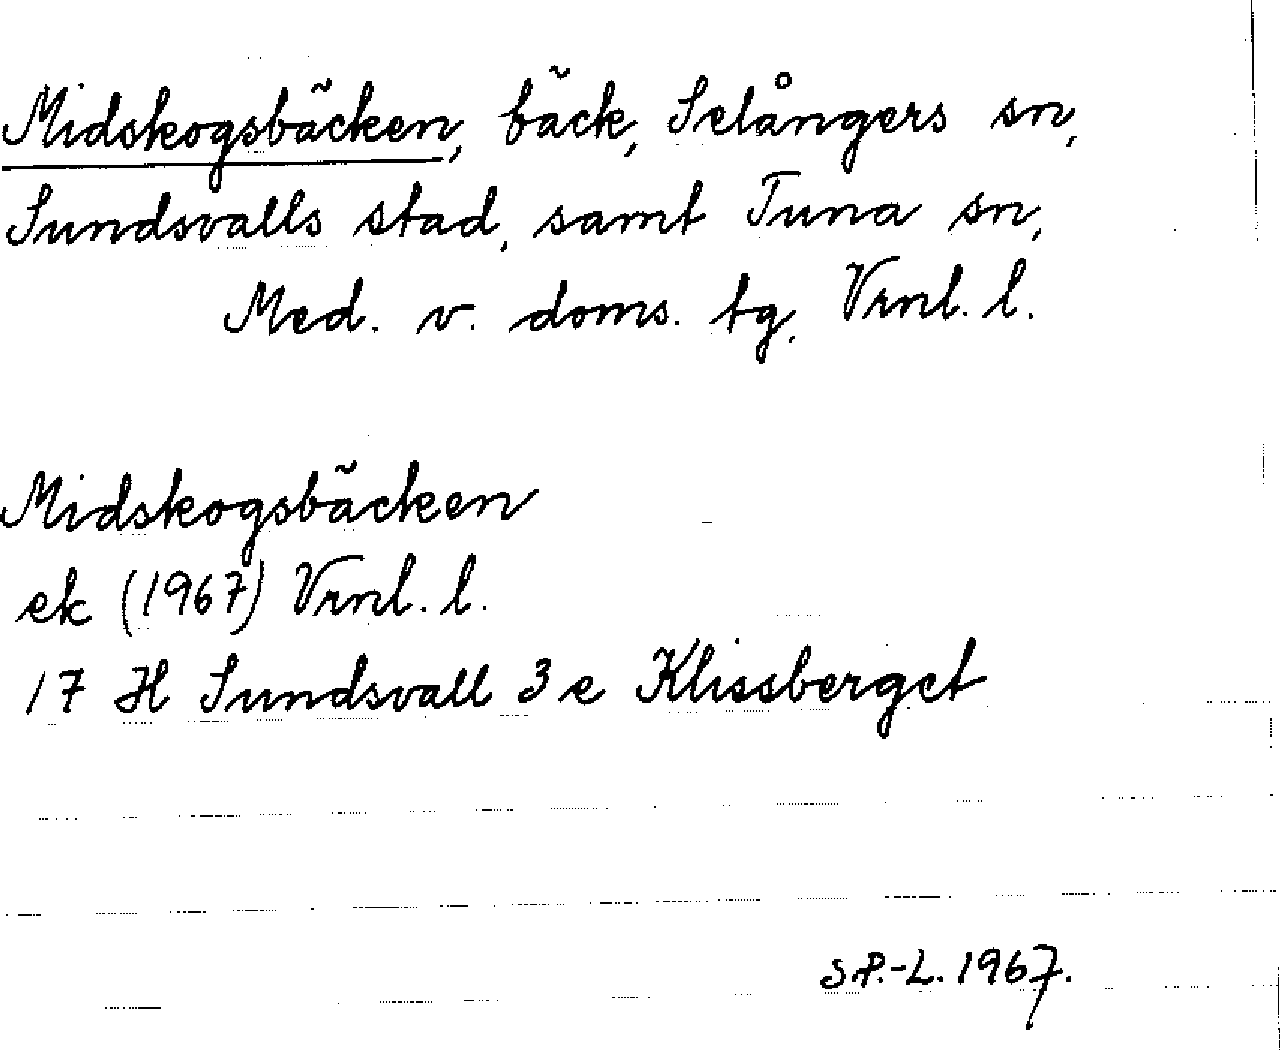 Midskogsbäcken, bäck, Selångers sn,
Sundsvalls stad, samt Tuna sn,
Med. v. doms. tg, Vrnl. l.
Midskogsbäcken
ek (1967) Vrnl. l.
17 H Sundsvall 3 e Klissberget
S.P.-L. 1967.